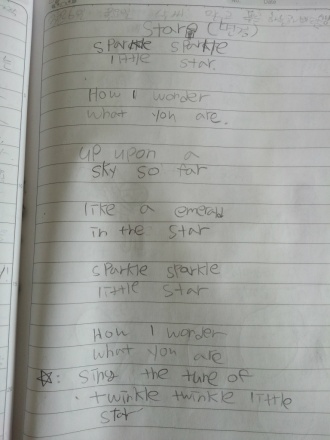 Stars (변형)
sparkle sparkle
little star.
How I wonder
what you are.
up upon a
sky so far
like a emerald
in the star
sparkle sparkle
little star
How I wonder
what you are
☆: sing the tune of
twinkle twinkle little
star